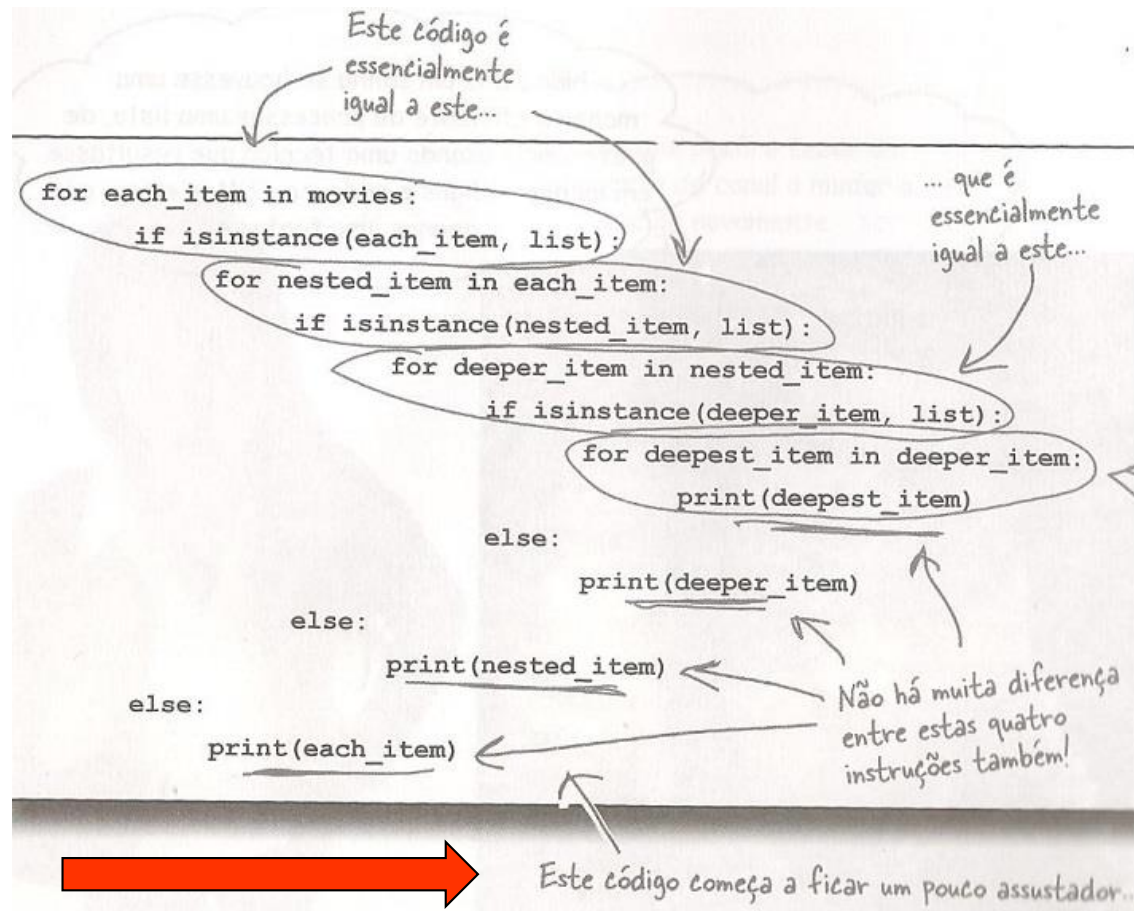 Este código é
essencialmente
igual a este...
for each_item in movies:
if isinstance(each_item, list):
... que é
essencialmente
igual a este...
for nested_item in each_item:
if isinstance(nested_item, list):
for deeper_item in nested_item:
if isinstance(deeper_item, list):
for deepest_item in deeper_item:
print(deepest_item)
else:
print(deeper_item)
else:
print(nested_item)
else:
print(each_item)
Não há muita diferença
entre estas quatro
instruções também!
Este código começa a ficar um pouco assustador...